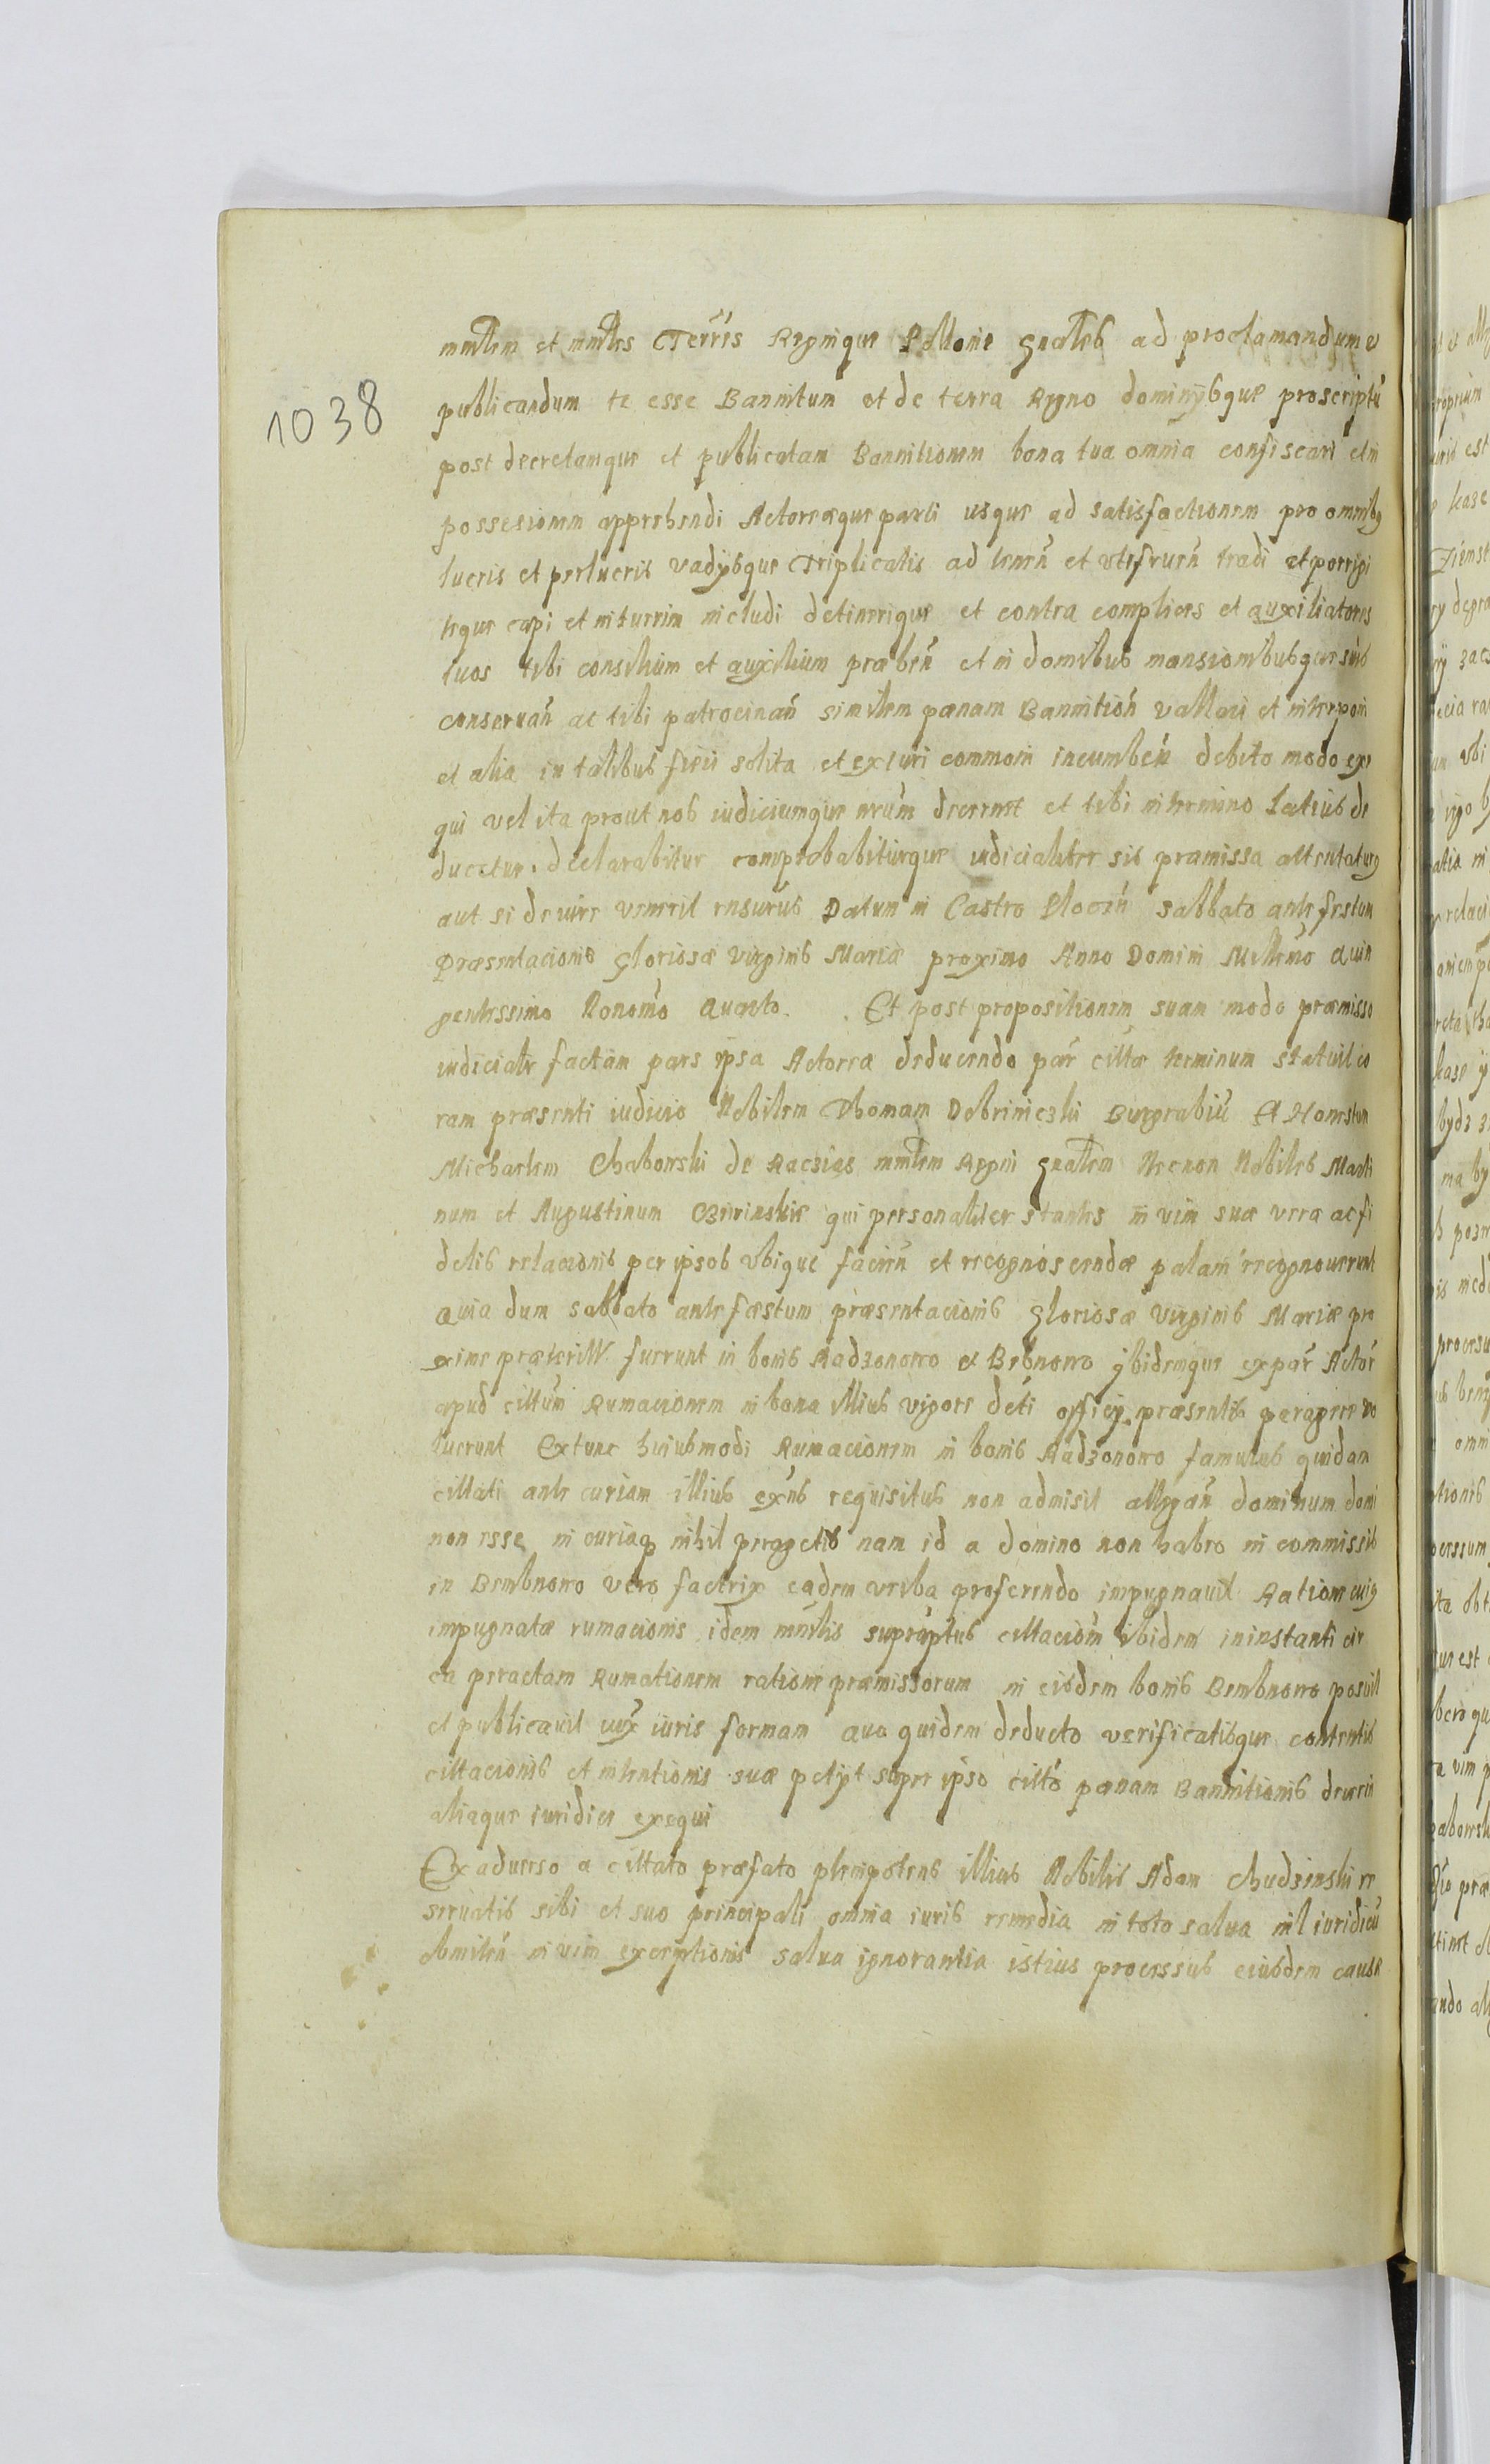 mnlem et mnles Terris Regnique Poloniæ gnales ad proclamandum et
1038
publicandum te esse Bannitum et de terra Regno dominijsque proscriptu
post decretamque et publicatam Bannitionem bona tua omnia confiscari et in
possesionem apprehendi Actoreæque parti usque ad satisfactionem pro omnibq
lucris et perlucris vadijsque triplicatis ad tenen et utifruen tradi et porrigi
teque capi et in turrim includi detinerique et contra complices et auxiliatores
tuos tibi consilium et auxilium præben et in domibus mansionibusque suis
conseruan ac tibi patrocinan similem pænam Bannition vallari et interponi
et alia in talibus fieri solita et ex iuri commoni incumben debito modo exe
qui vel ita prout nos iudiciumque nrum decernet et tibi in termino latius de
ducetur. declarabitur comprobabiturque iudicialiter sis præmissa attentaturq
aut si de iure venerit ensurus Datum in Castro Plocen sabbato ante festum
Præsentacionis gloriosæ virginis Mariæ proximo Anno Domini Millimo Quin
gentessimo Nonomo Quarto. Et post propositionem suam modo præmisso
iudicialr factam pars ipsa Actorea deducendo par cittæ terminum statuit co
ram præsenti iudicio Nobilem Thomam Dobrinieski Burgrabiu Et Honestum
Michaelem Chabowski de Raczias mnlem Regni gnalem Necnon Nobiles Marti
num et Augustinum qui personaliter stantes in vim suæ veræ ac fi
delis relacionis per ipsos ubique facien et recognoscendæ palam recognouerunt
Quia dum sabbato ante fæstum præsentacionis gloriosæ virginis Mariæ pro
xime præterito fuerunt in bonis Radzonowo et Bebnowo ybidemque ex par Actor
apud cittum Rumacionem in bona illius vigore deti officij præsentis peragere vo
luerunt Extunc huiusmodi Rumacionem in bonis Radzonowo famulus quidam
cittati ante curiam illius exns requisitus non admisit allegan dominum domi
non esse in curiaq nihil peragetis nam id a domino non habeo in commissis
in Bembnowo vero factrix eadem verba proferendo impugnauit Ratione cuiq
impugnatæ rumacionis idem mnlis supraptus cittacion ibidem in instanti cir
ca peractam Rumationem ratione præmissorum in eisdem bonis Bembnowo posuit
et publicauit iux iuris formam quo quidem deducto verificatisque contentis
cittacionis et intentionis suæ petijt super ipso citto pænam Bannitionis decerni
aliaque iuridice exequi
Ex aduerso a cittato præfato plenipotens illius Nobilis Adam Chudzinski re
seruatis sibi et suo principali omnia iuris remedia in toto salua nil iuridicu
obmitten in vim exceptionis salua ignorantia istius processus eiusdem causæ